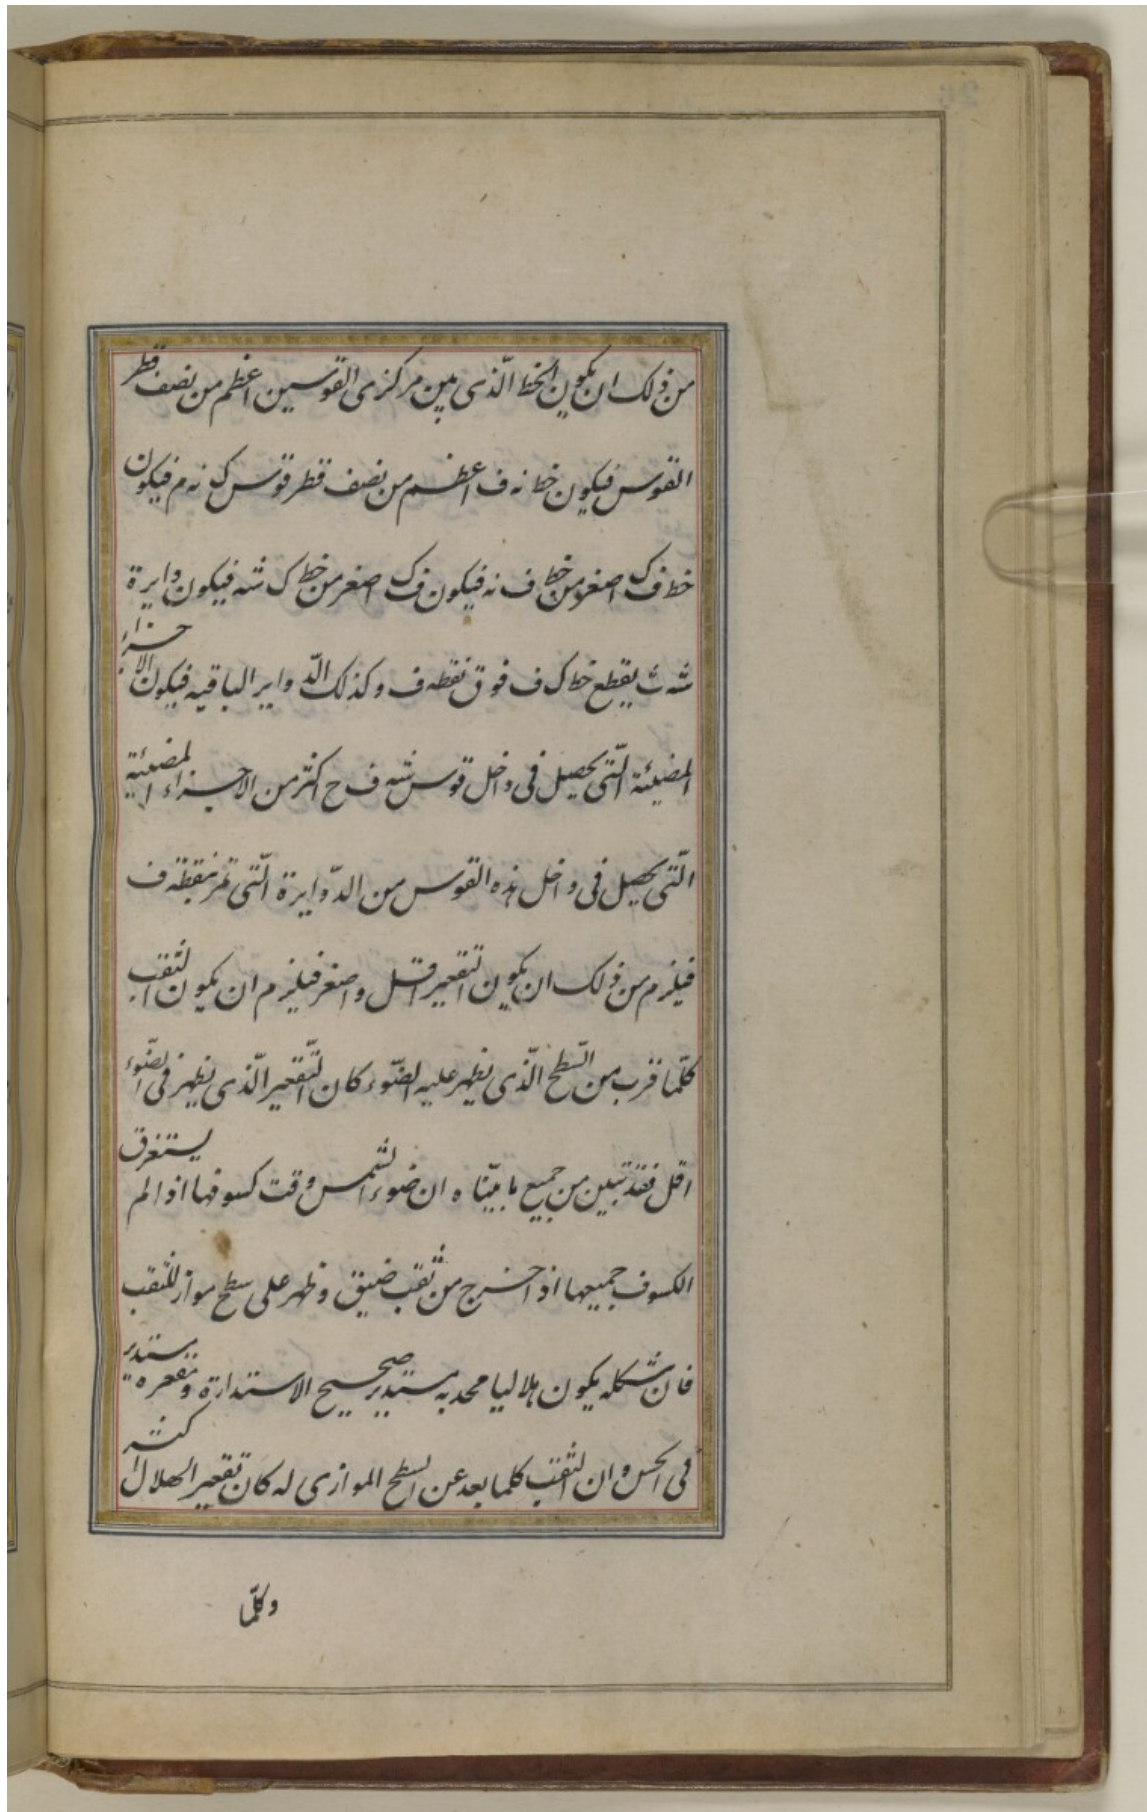 من ذلک ان یکون الخط الّذی بین مرکزی القوسین اعظم من نصف قطر
القوس فیکون خط نه ف اعظم من نصف قطر قوس ک نه م فیکون
خط ف ک اصغر من خط ف نه فیکون ف ک اصغر من خط ک شه فیکون دایرة
شه ث یقطع خط ک ف فوق نقطه ف وکذلک الدّوایر الباقیه فیکون الاجزاء
المضیئة الّتی یحصل فی داخل قوس شه ف ح اکثر من الاجزاء المضیئة
الّتی یحصل فی داخل هذه القوس من الدّوایرة الّتی تمر بنقطه ف
فیلزم من ذلک ان یکون التقعیر اقل واصغر فیلزم ان یکون الثقب
کلّما قرب من السّطح الّذی یظهر علیه الضّوء کان التّقعیر الّذی یظهر فی الضّوء
اقل فقد تبین من جمیع ما بیّناه ان ضوء الشمس وقت کسوفها اذا لم یستغرق
الکسوف جمیعها اذا خرج من ثقب ضیق وظهر علی سطح مواز للثقب
فان شکله یکون هلالیا محدبه مستدیر صحیح الاستدارة ومقعره مستدیر
فی الحس وان الثقب کلما بعد عن السطح الموازی له کان تقعیر الهلال اکثر
وکلّما